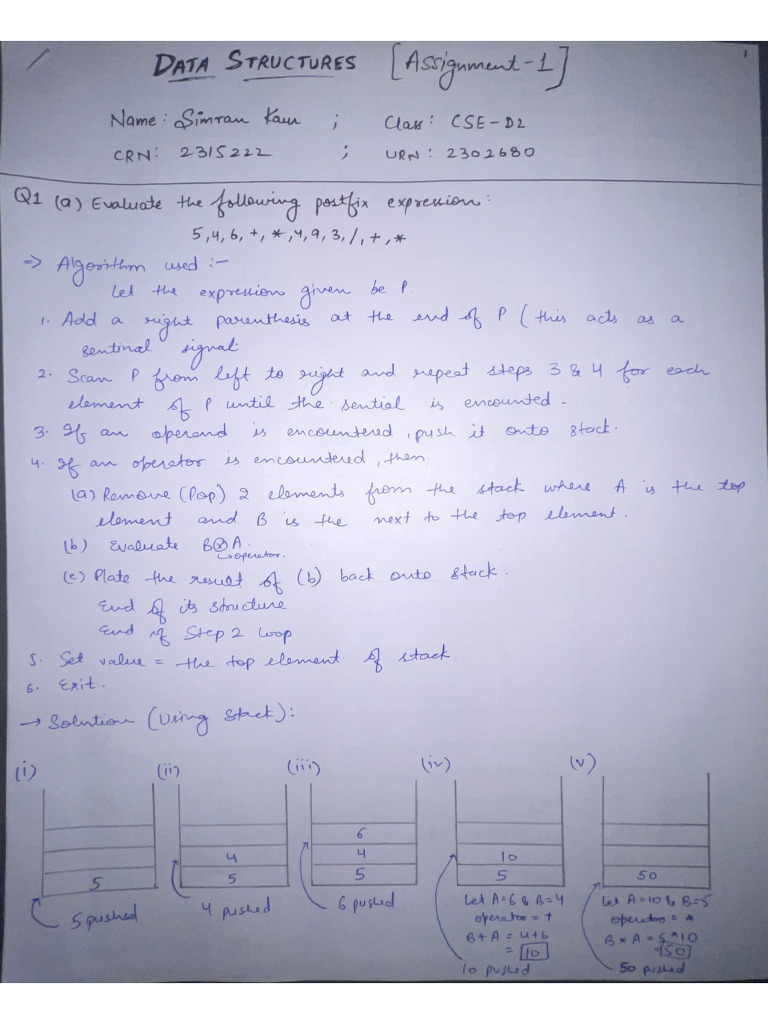 DATA STRUCTURES [Assignment-1]
1
Name: Simran Kaur ; Class: CSE-D2
CRN: 2315222 ; URN: 2302680
Q1 (a) Evaluate the following postfix expression:
5,4,6,+,*,4,9,3,/,+,*
=> Algorithm used :-
Let the expression given be P.
1. Add a right parenthesis at the end of P (this acts as a
sentinal signal.
2. Scan P from left to right and repeat steps 3 & 4 for each
element of P until the sential is encounted.
3. If an operand is encountered, push it onto stack.
4. If an operator is encountered, then
(a) Remove (Pop) 2 elements from the stack where A is the top
element and B is the next to the top element.
(b) Evaluate B⊗A.
↳operator.
(c) Plate the result of (b) back onto stack.
End of its structure
End of Step 2 loop
5. Set value = the top element of stack.
6. Exit.
→ Solution (Using Stack):
(i) (ii) (iii) (iv) (v)
6
4 4 10
5 5 5 5 50
5 pushed 4 pushed 6 pushed
Let A=6 & B=4
operator = +
B+A = 4+6
= 10
10 pushed
Let A=10 & B=5
operator = *
B*A = 5*10
=50
50 pushed